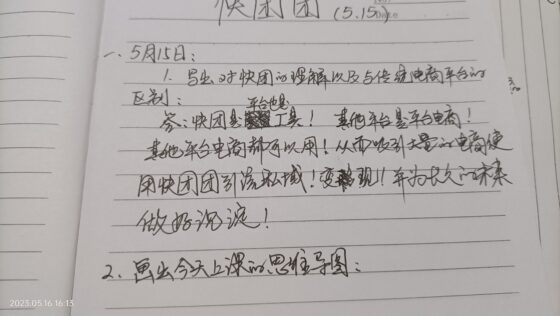 快团团 (5.15)
一、5月15日：
1. 写出对快团的理解以及与传统电商平台的
区别：
答：快团是平台也是工具！ 其他平台是平台电商！
其他平台电商都可以用！从而吸引大量的电商使
用快团团引流私域！变现！！并为长久的未来
做好沉淀！
2、画出今天上课的思维导图：
2023.05.16 16:13